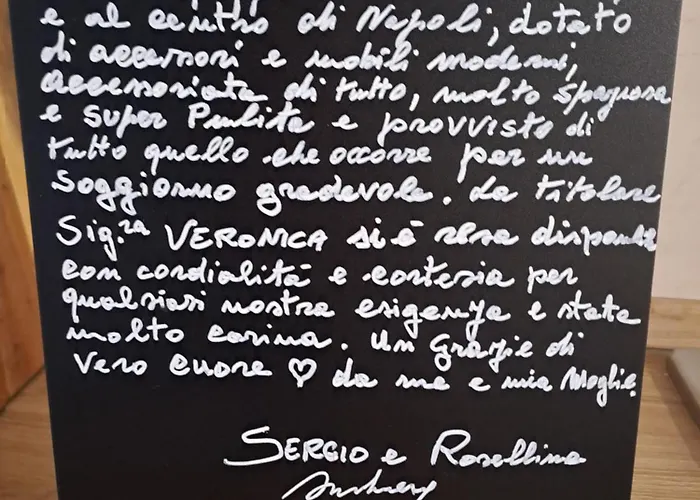 e al centro di Napoli, dotato
di accessori e mobili moderni,
accessoriata di tutto, molto spaziosa
e super Pulita e provvisto di
tutto quello che occorre per un
Soggiorno gradevole. La titolare
Sig.ra VERONICA si è resa disponibile
con cordialità e cortesia per
qualsiasi nostra esigenza e stata
molto carina. Un Grazie di
Vero cuore ♡ da me e mia Moglie.
SERGIO e Rosellina